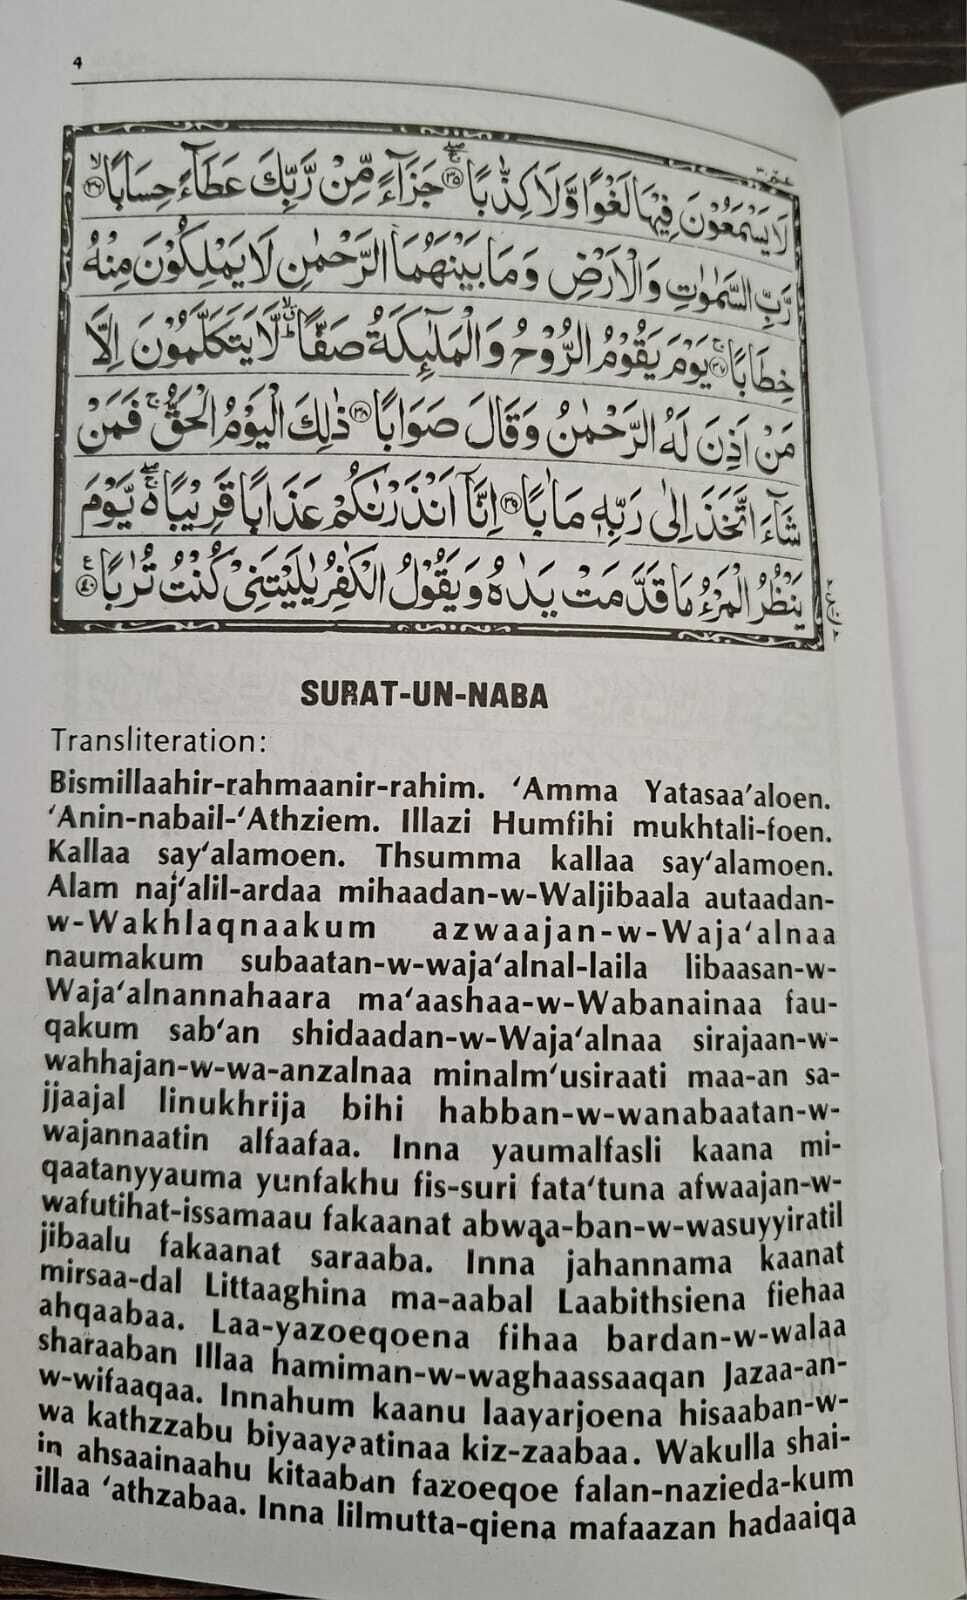 4
عم ٣
لَا يَسْمَعُوْنَ فِيْهَا لَغْوًا وَّلَا كِذّٰبًا ﴿٣٥﴾ جَزَآءً مِّنْ رَّبِّكَ عَطَآءً حِسَابًا ﴿٣٦﴾
رَّبِّ السَّمٰوٰتِ وَالْاَرْضِ وَمَا بَيْنَهُمَا الرَّحْمٰنِ لَا يَمْلِكُوْنَ مِنْهُ
خِطَابًا ﴿٣٧﴾ يَوْمَ يَقُوْمُ الرُّوْحُ وَالْمَلٰٓئِكَةُ صَفًّا لَّا يَتَكَلَّمُوْنَ اِلَّا
مَنْ اَذِنَ لَهُ الرَّحْمٰنُ وَقَالَ صَوَابًا ﴿٣٨﴾ ذٰلِكَ الْيَوْمُ الْحَقُّ فَمَنْ
شَآءَ اتَّخَذَ اِلٰى رَبِّهٖ مَاٰبًا ﴿٣٩﴾ اِنَّآ اَنْذَرْنٰكُمْ عَذَابًا قَرِيْبًا يَّوْمَ
يَنْظُرُ الْمَرْءُ مَا قَدَّمَتْ يَدٰهُ وَيَقُوْلُ الْكٰفِرُ يٰلَيْتَنِيْ كُنْتُ تُرٰبًا ﴿٤٠﴾
SURAT-UN-NABA
Transliteration:
Bismillaahir-rahmaanir-rahim. ‘Amma Yatasaa’aloen.
‘Anin-nabail-‘Athziem. Illazi Humfihi mukhtali-foen.
Kallaa say‘alamoen. Thsumma kallaa say‘alamoen.
Alam naj‘alil-ardaa mihaadan-w-Waljibaala autaadan-
w-Wakhlaqnaakum azwaajan-w-Waja‘alnaa
naumakum subaatan-w-waja‘alnal-laila libaasan-w-
Waja‘alnannahaara ma‘aashaa-w-Wabanainaa fau-
qakum sab‘an shidaadan-w-Waja‘alnaa sirajaan-w-
wahhajan-w-wa-anzalnaa minalm‘usiraati maa-an sa-
jjaajal linukhrija bihi habban-w-wanabaatan-w-
wajannaatin alfaafaa. Inna yaumalfasli kaana mi-
qaatanyyauma yunfakhu fis-suri fata‘tuna afwaajan-w-
wafutihat-issamaau fakaanat abwaa-ban-w-wasuyyiratil
jibaalu fakaanat saraaba. Inna jahannama kaanat
mirsaa-dal Littaaghina ma-aabal Laabithsiena fiehaa
ahqaabaa. Laa-yazoeqoena fihaa bardan-w-walaa
sharaaban Illaa hamiman-w-waghaassaaqan Jazaa-an-
w-wifaaqaa. Innahum kaanu laayarjoena hisaaban-w-
wa kathzzabu biyaayaatinaa kiz-zaabaa. Wakulla shai-
in ahsaainaahu kitaaban fazoeqoe falan-nazieda-kum
illaa ‘athzabaa. Inna lilmutta-qiena mafaazan hadaaiqa